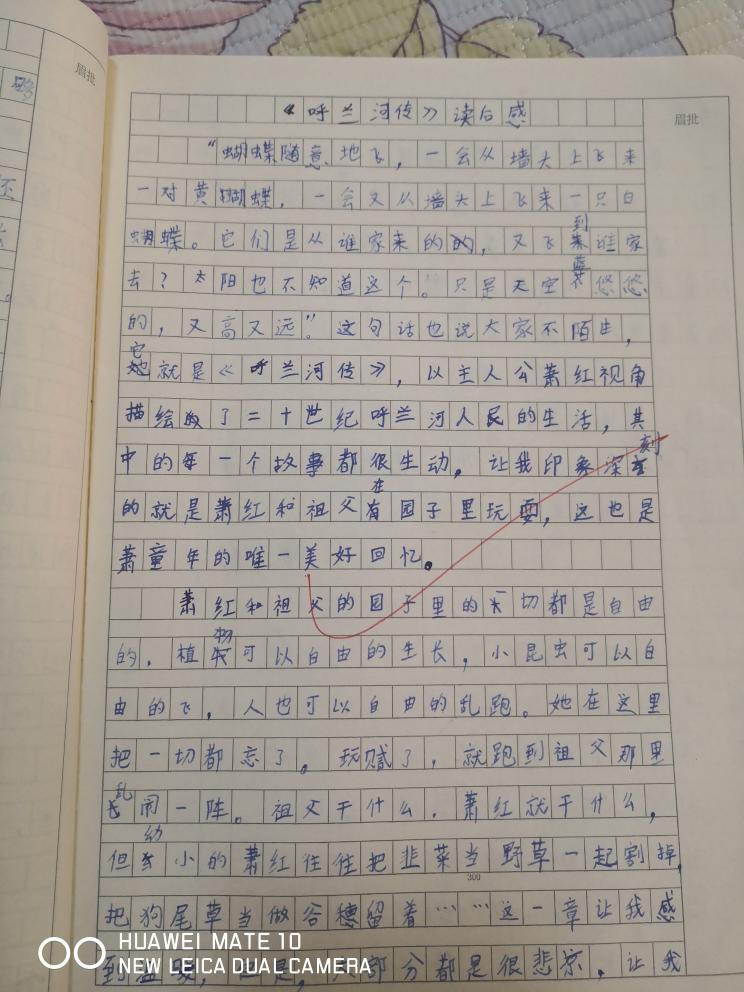 眉批
眉批
《呼兰河传》读后感
“蝴蝶随意地飞，一会从墙头上飞来
一对黄蝴蝶，一会又从墙头上飞来一只白
蝴蝶。它们是从谁家来的，又飞到谁家
去？太阳也不知道这个。只是天空蓝悠悠
的，又高又远”。这句话也说大家不陌生，
它就是《呼兰河传》，以主人公萧红视角
描绘了二十世纪呼兰河人民的生活，其
中的每一个故事都很生动，让我印象深刻
的就是萧红和祖父在园子里玩耍，这也是
萧童年的唯一美好回忆。
萧红和祖父的园子里的一切都是自由
的，植物可以自由的生长，小昆虫可以自
由的飞，人也可以自由的乱跑。她在这里
把一切都忘了。玩腻了，就跑到祖父那里
乱闹一阵。祖父干什么，萧红就干什么，
但幼小的萧红往往把韭菜当野草一起割掉，
300
把狗尾草当做谷穗留着……这一章让我感
到温暖，但是，大部分都是很悲凉，让我
HUAWEI MATE 10
NEW LEICA DUAL CAMERA